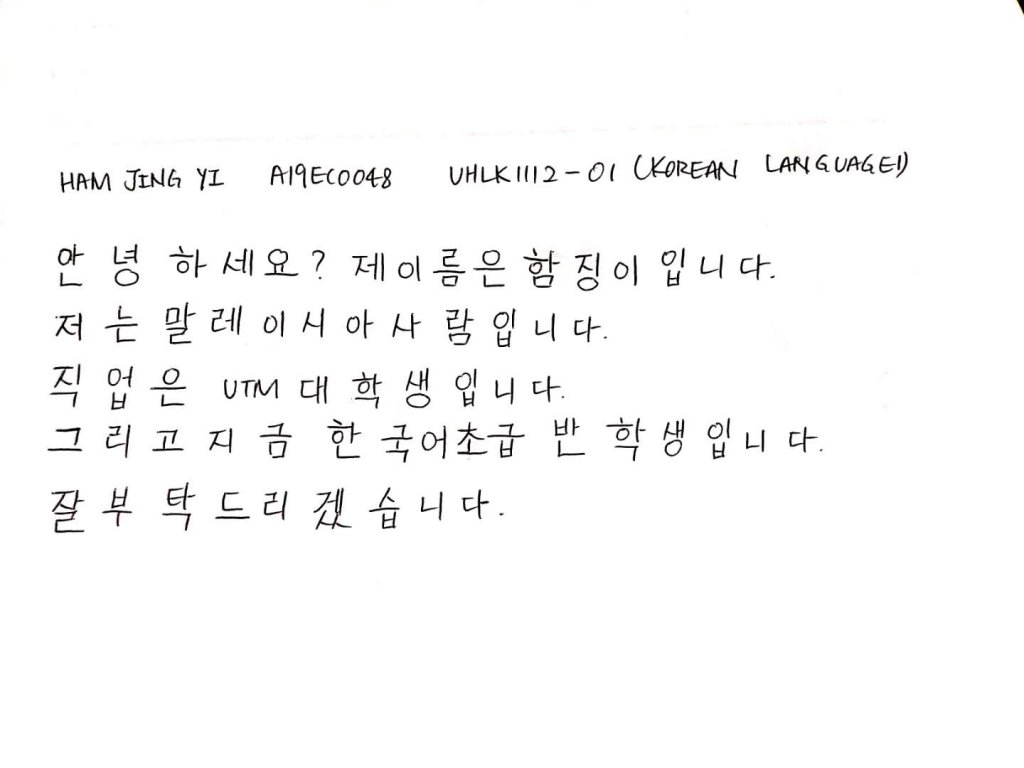 HAM JING YI A19EC0048 UHLK1112-01 (KOREAN LANGUAGE1)
안녕하세요? 제이름은 함징이입니다.
저는 말레이시아사람입니다.
직업은 UTM 대학생입니다.
그리고 지금 한국어초급 반 학생입니다.
잘 부탁드리겠습니다.